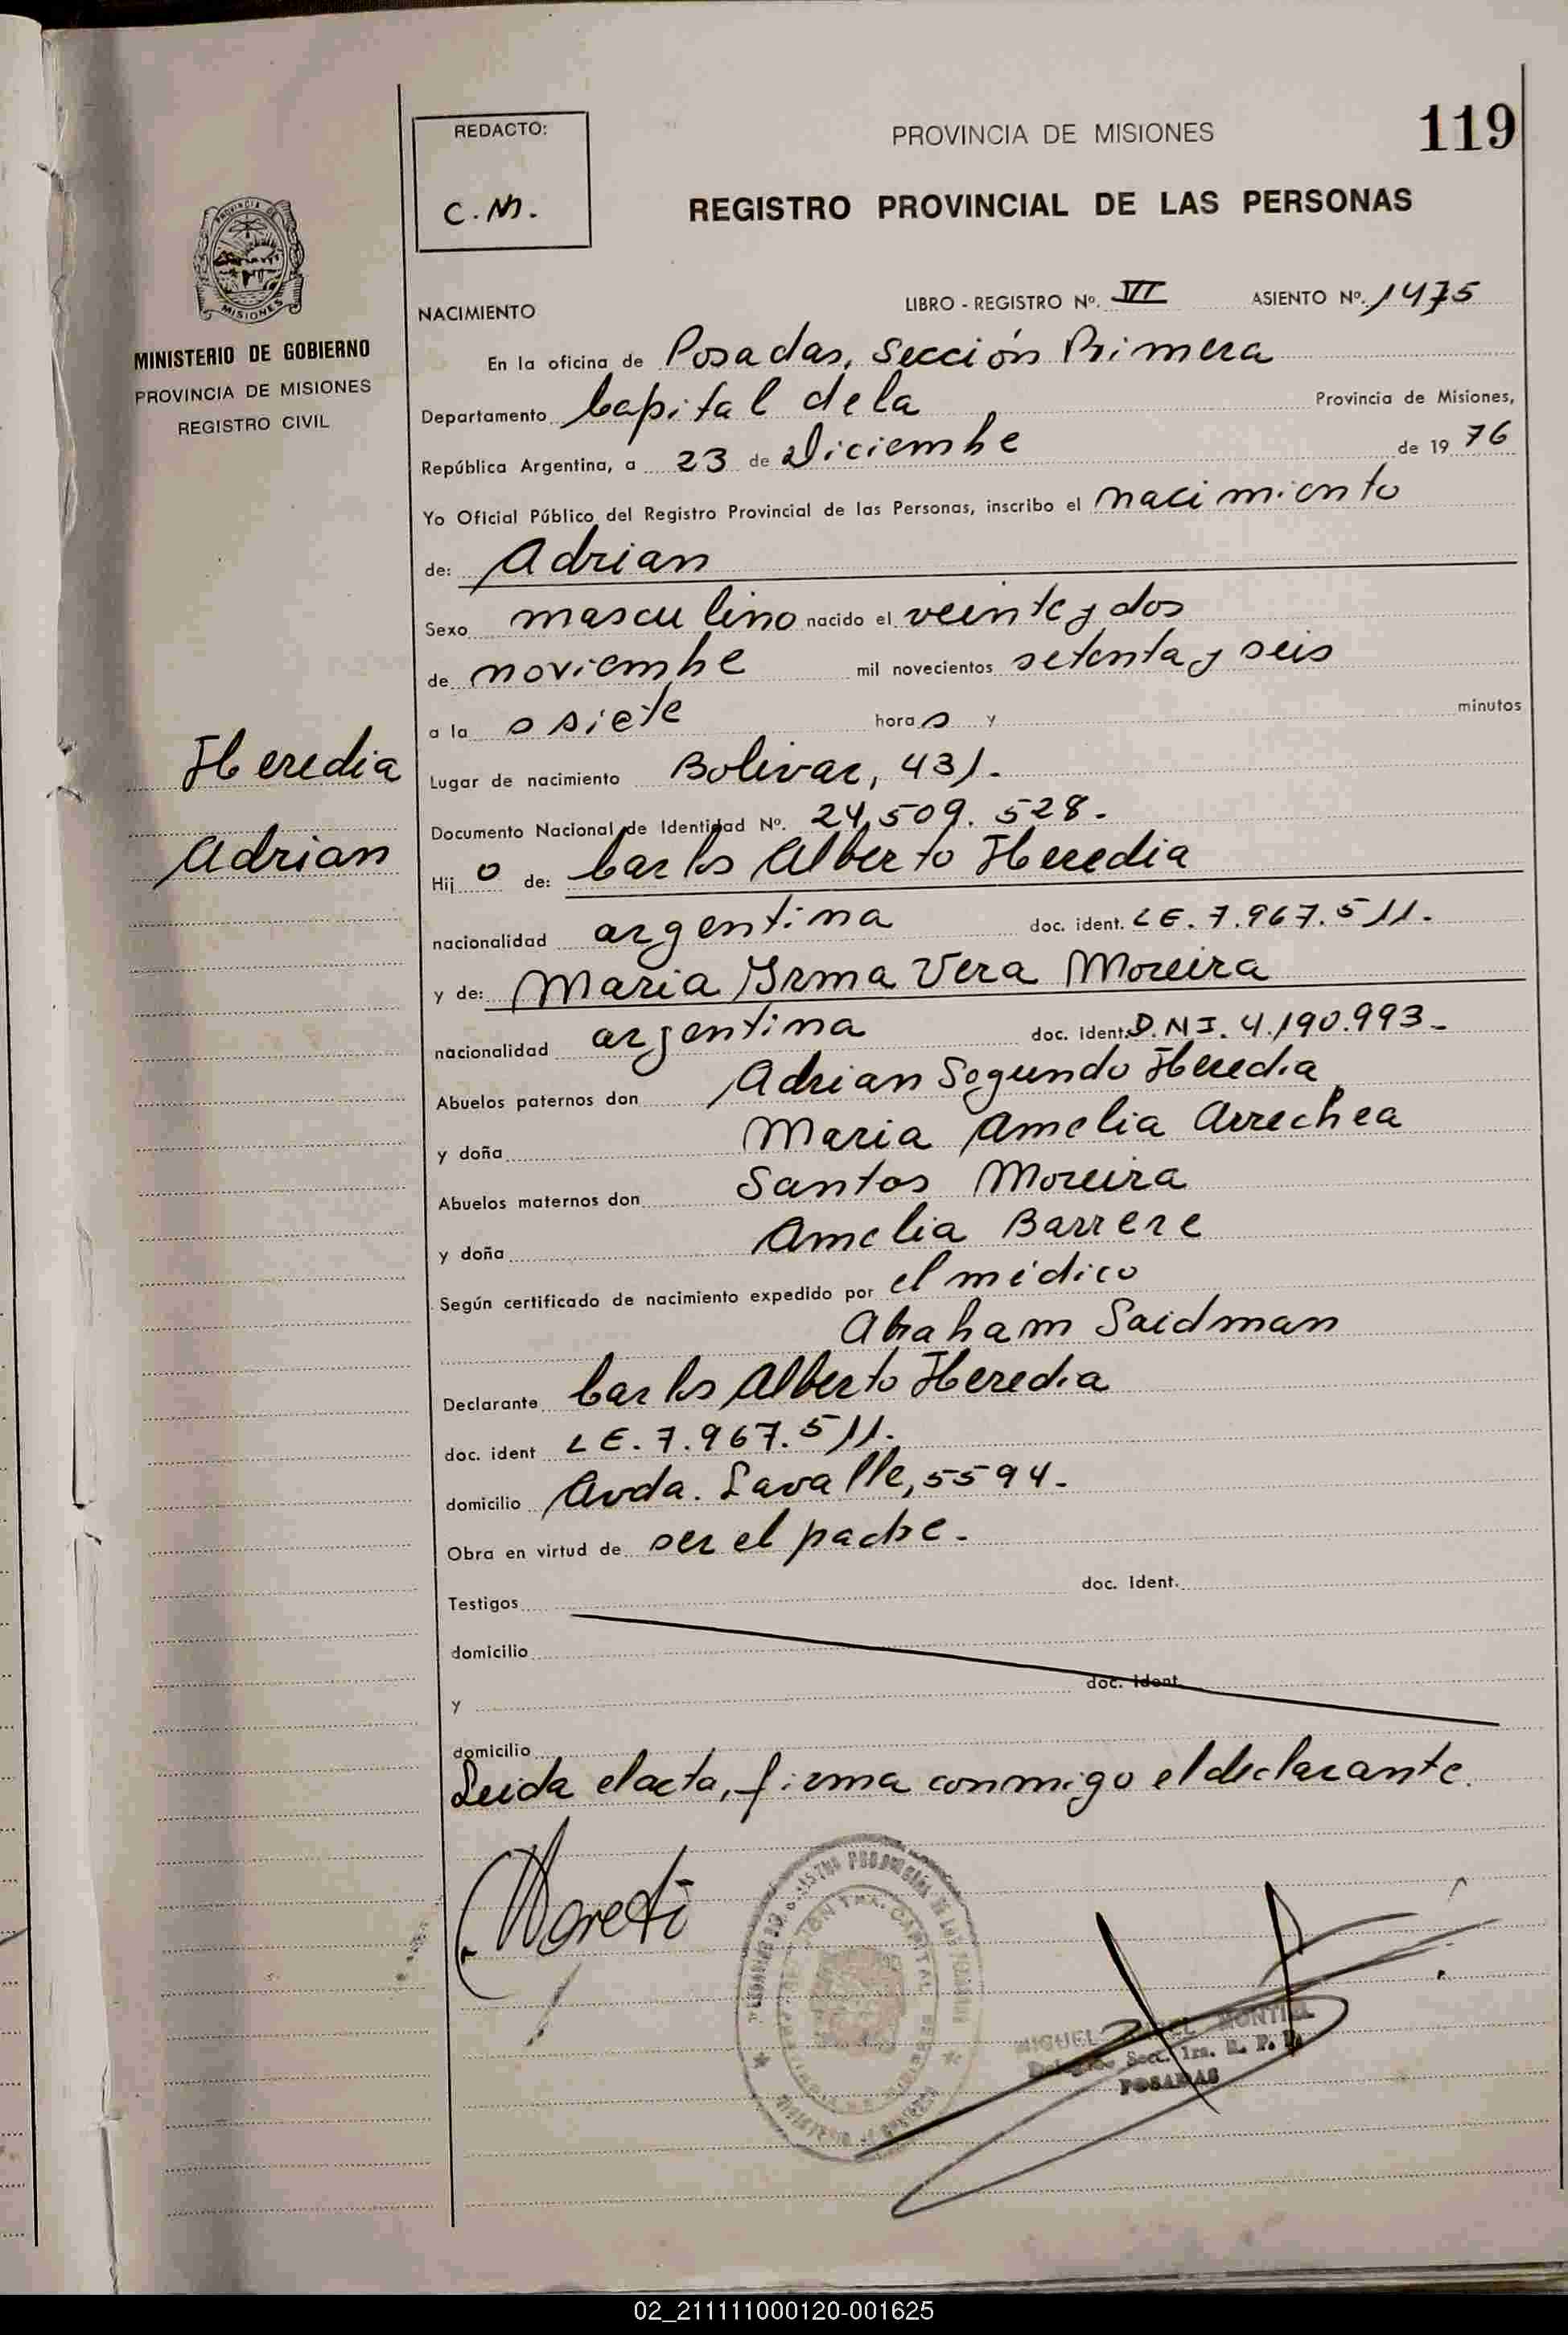 119
REDACTO:
C. M.
PROVINCIA DE MISIONES
REGISTRO PROVINCIAL DE LAS PERSONAS
PROVINCIA DE
MISIONES
MINISTERIO DE GOBIERNO
PROVINCIA DE MISIONES
REGISTRO CIVIL
NACIMIENTO
LIBRO - REGISTRO Nº. VI ASIENTO Nº. 1475
En la oficina de Posadas, Sección Primera
Departamento Capital de la Provincia de Misiones,
República Argentina, a 23 de Diciembre de 1976
Yo Oficial Público del Registro Provincial de las Personas, inscribo el nacimiento
de: Adrian
Sexo masculino nacido el veinte y dos
de noviembre mil novecientos setenta y seis
a la s siete hora s y minutos
Heredia
Adrian
Lugar de nacimiento Bolivar, 431.
Documento Nacional de Identidad Nº. 24,509.528.-
Hij o de: Carlos Alberto Heredia
nacionalidad argentina doc. ident. LE. 7.967.511.
y de: Maria Irma Vera Moreira
nacionalidad argentina doc. ident. D.N.I. 4.190.993-
Abuelos paternos don Adrian Segundo Heredia
y doña Maria Amelia Arrechea
Abuelos maternos don Santos Moreira
y doña Amelia Barrere
Según certificado de nacimiento expedido por el médico
Abraham Saidman
Declarante Carlos Alberto Heredia
doc. ident LE. 7.967.511.
domicilio Avda. Lavalle, 5594-
Obra en virtud de ser el padre-
Testigos doc. Ident.
domicilio
y doc. Ident.
domicilio
Leida el acta, firma conmigo el declarante.
MIGUEL MONTIEL
Sect. 1ra. R. P. P.
POSADAS
02_211111000120-001625